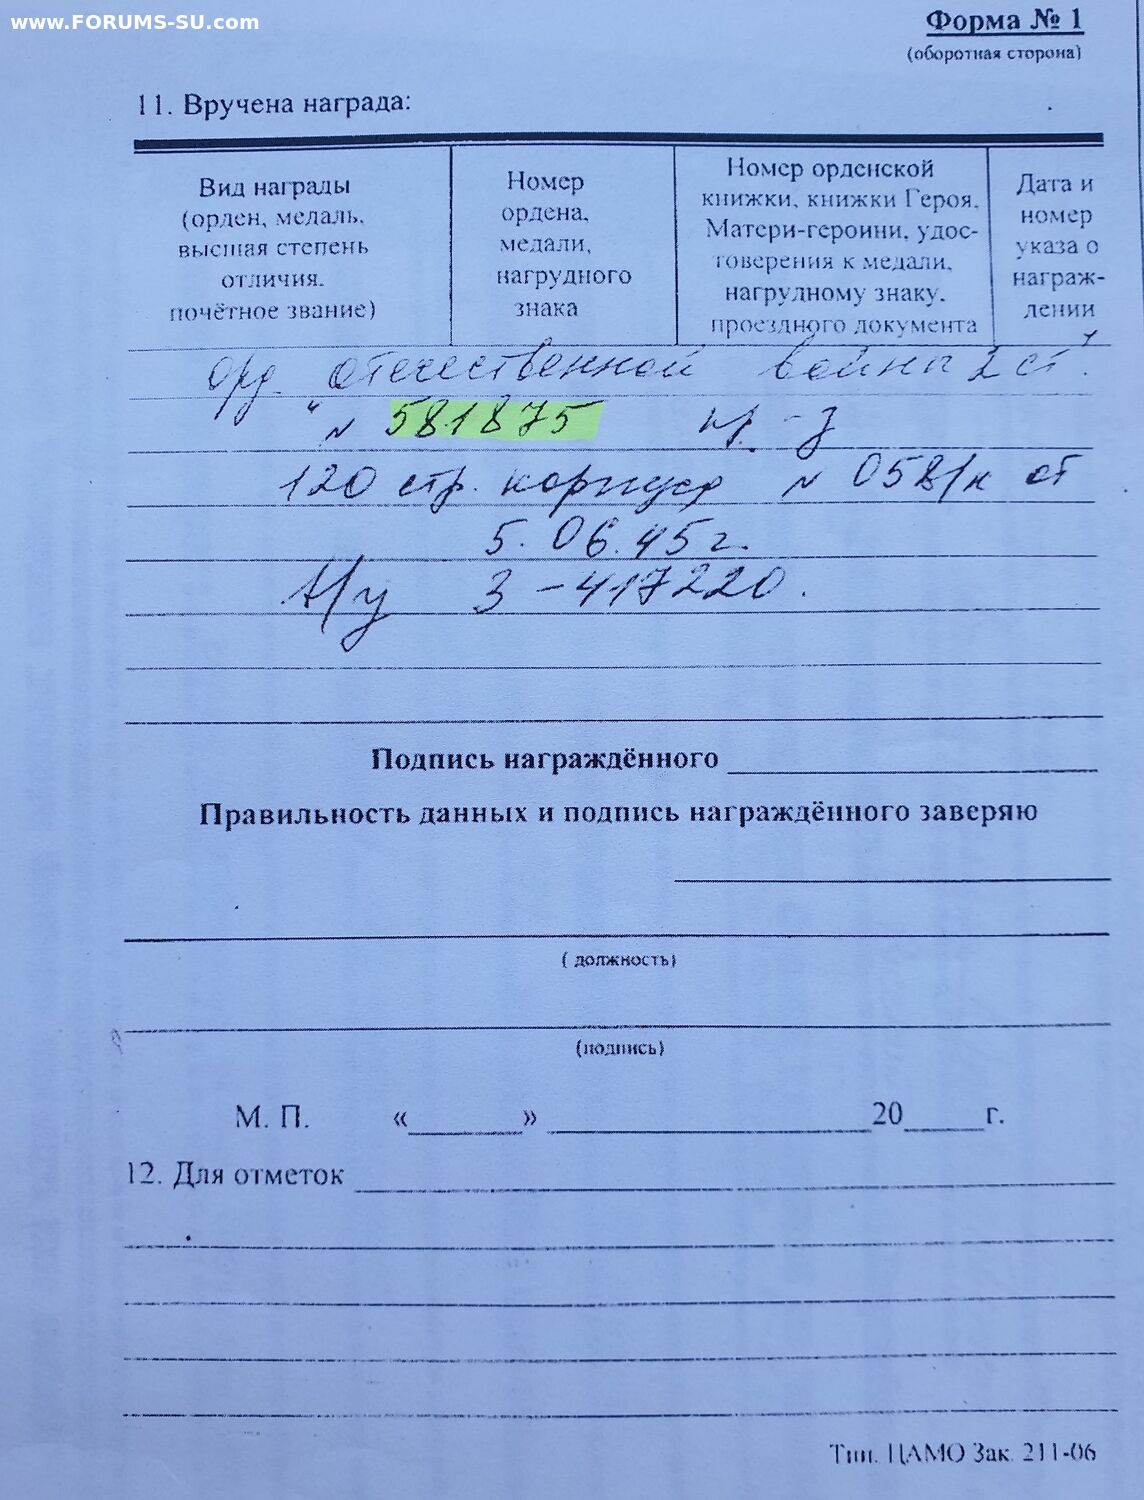 www.FORUMS-SU.com
Форма № 1
(оборотная сторона)
11. Вручена награда:
Вид награды
(орден, медаль,
высшая степень
отличия,
почётное звание)
Номер
ордена,
медали,
нагрудного
знака
Номер орденской
книжки, книжки Героя,
Матери-героини, удос-
товерения к медали,
нагрудному знаку,
проездного документа
Дата и
номер
указа о
награж-
дении
Орд. Отечественной войны 2 ст.
" № 581875 пр-з
120 стр. корпуса № 058/н от
5.06.45г.
А/у 3-417220.
Подпись награждённого
Правильность данных и подпись награждённого заверяю
( должность)
(подпись)
М. П. « » 20 г.
12. Для отметок
Тип. ЦАМО Зак. 211-06